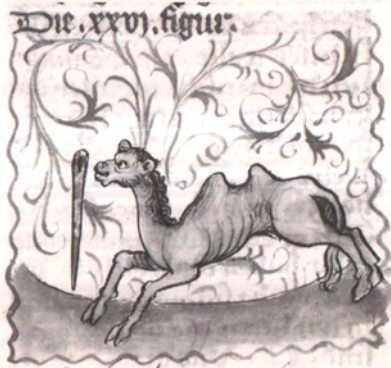 Die .xxvj. figur.